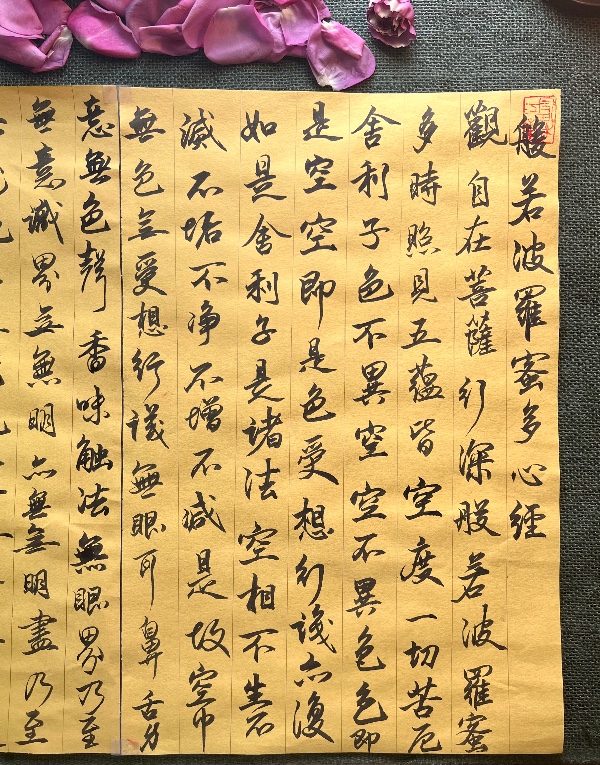 般若波羅蜜多心經
觀自在菩薩行深般若波羅蜜
多時照見五蘊皆空度一切苦厄
舍利子色不異空空不異色色即
是空空即是色受想行識亦復
如是舍利子是諸法空相不生不
滅不垢不净不增不减是故空中
無色无受想行識無眼耳鼻舌身
意無色聲香味触法無眼界乃至
無意識界无無明亦無無明盡乃至